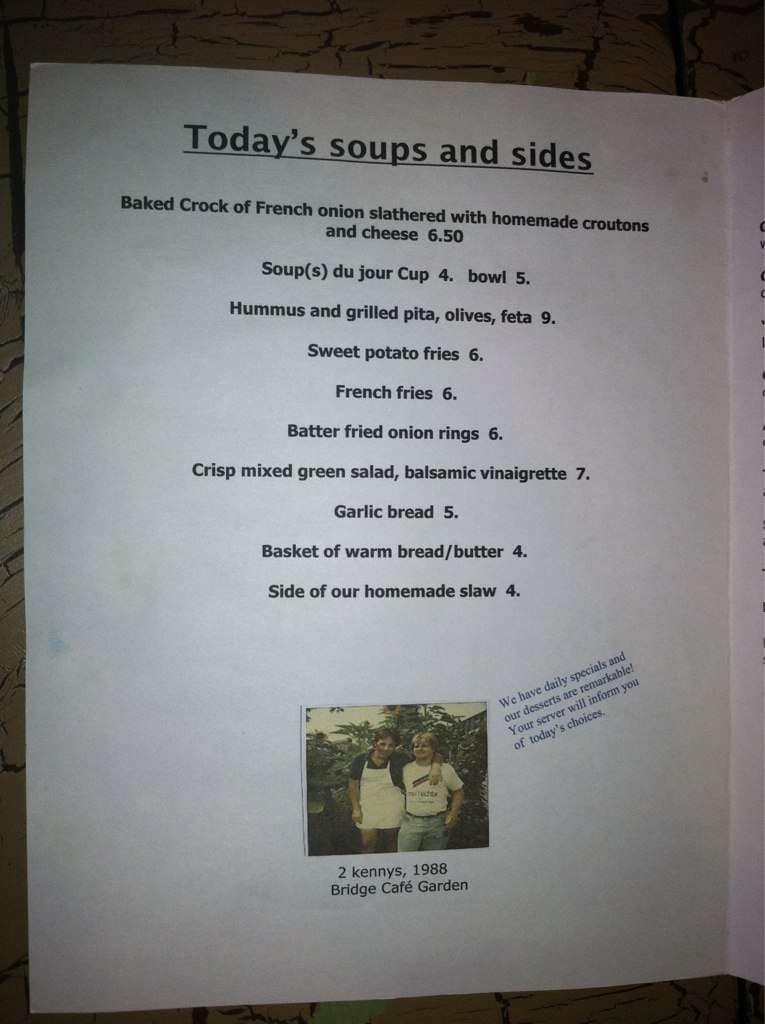 Today's soups and sides
Baked Crock of French onion slathered with homemade croutons
and cheese 6.50
Soup(s) du jour Cup 4. bowl 5.
Hummus and grilled pita, olives, feta 9.
Sweet potato fries 6.
French fries 6.
Batter fried onion rings 6.
Crisp mixed green salad, balsamic vinaigrette 7.
Garlic bread 5.
Basket of warm bread/butter 4.
Side of our homemade slaw 4.
We have daily specials and
our desserts are remarkable!
Your server will inform you
of today's choices.
2 kennys, 1988
Bridge Café Garden